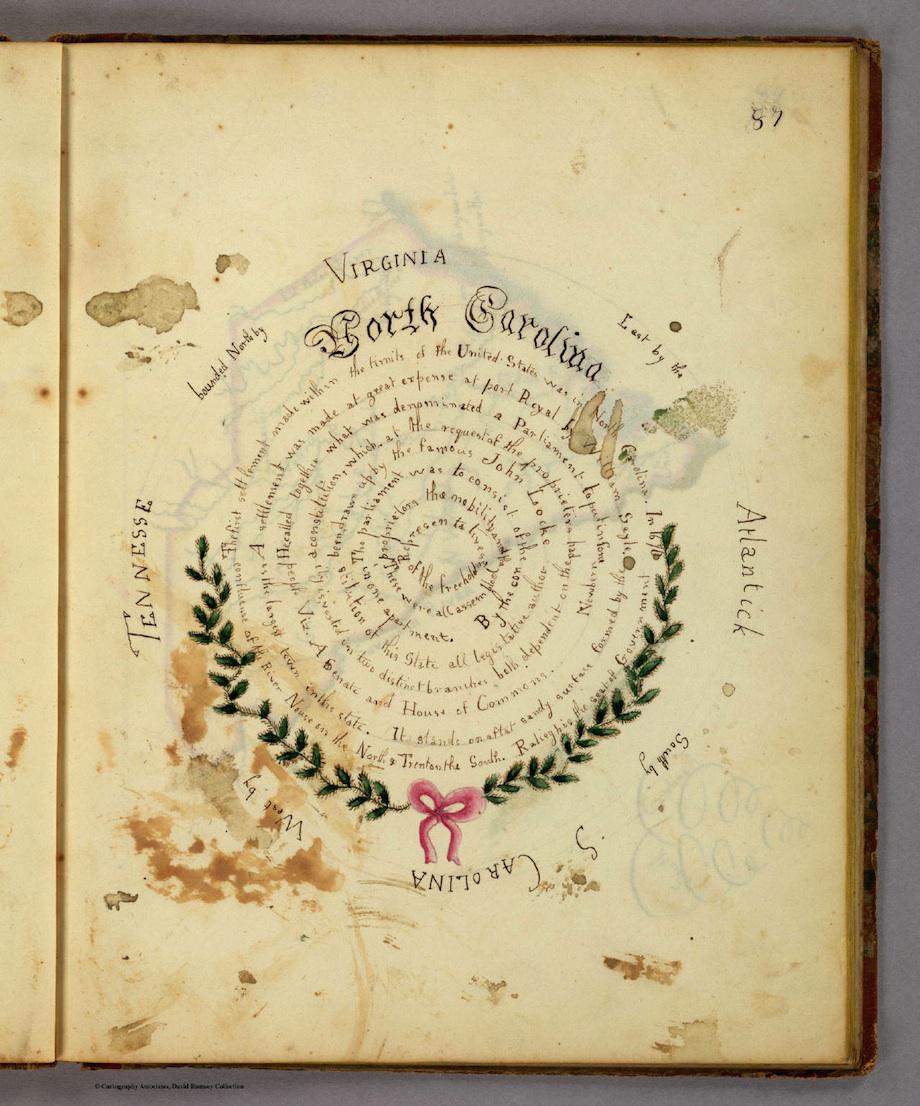 87
VIRGINIA
North Carolina
bounded North by
East by the
Atlantick
South by
S CAROLINA
West by
TENNESSE
The first settlement made within the limits of the United States was in North Carolina. In 1670
A settlement was made at great expense at port Royal by Sayle
called together what was denominated a Parliament
a constitution, which, at the request of the proprietors had
been drawn up by the famous John Locke
The parliament was to consist of the
proprietors the nobility and
Representatives
of the freeholders
these were all assembled
in one apartment. By the con
stitution of this State all legislative author
ity is vested on two distinct branches both dependent on the
Viz. A Senate and House of Commons. Newbern
is the largest town in this state. It stands on a flat sandy surface formed by the
confluence of the River Neuse on the North & Trent on the South. Raliegh is the seat of Government
© Cartography Associates, David Rumsey Collection